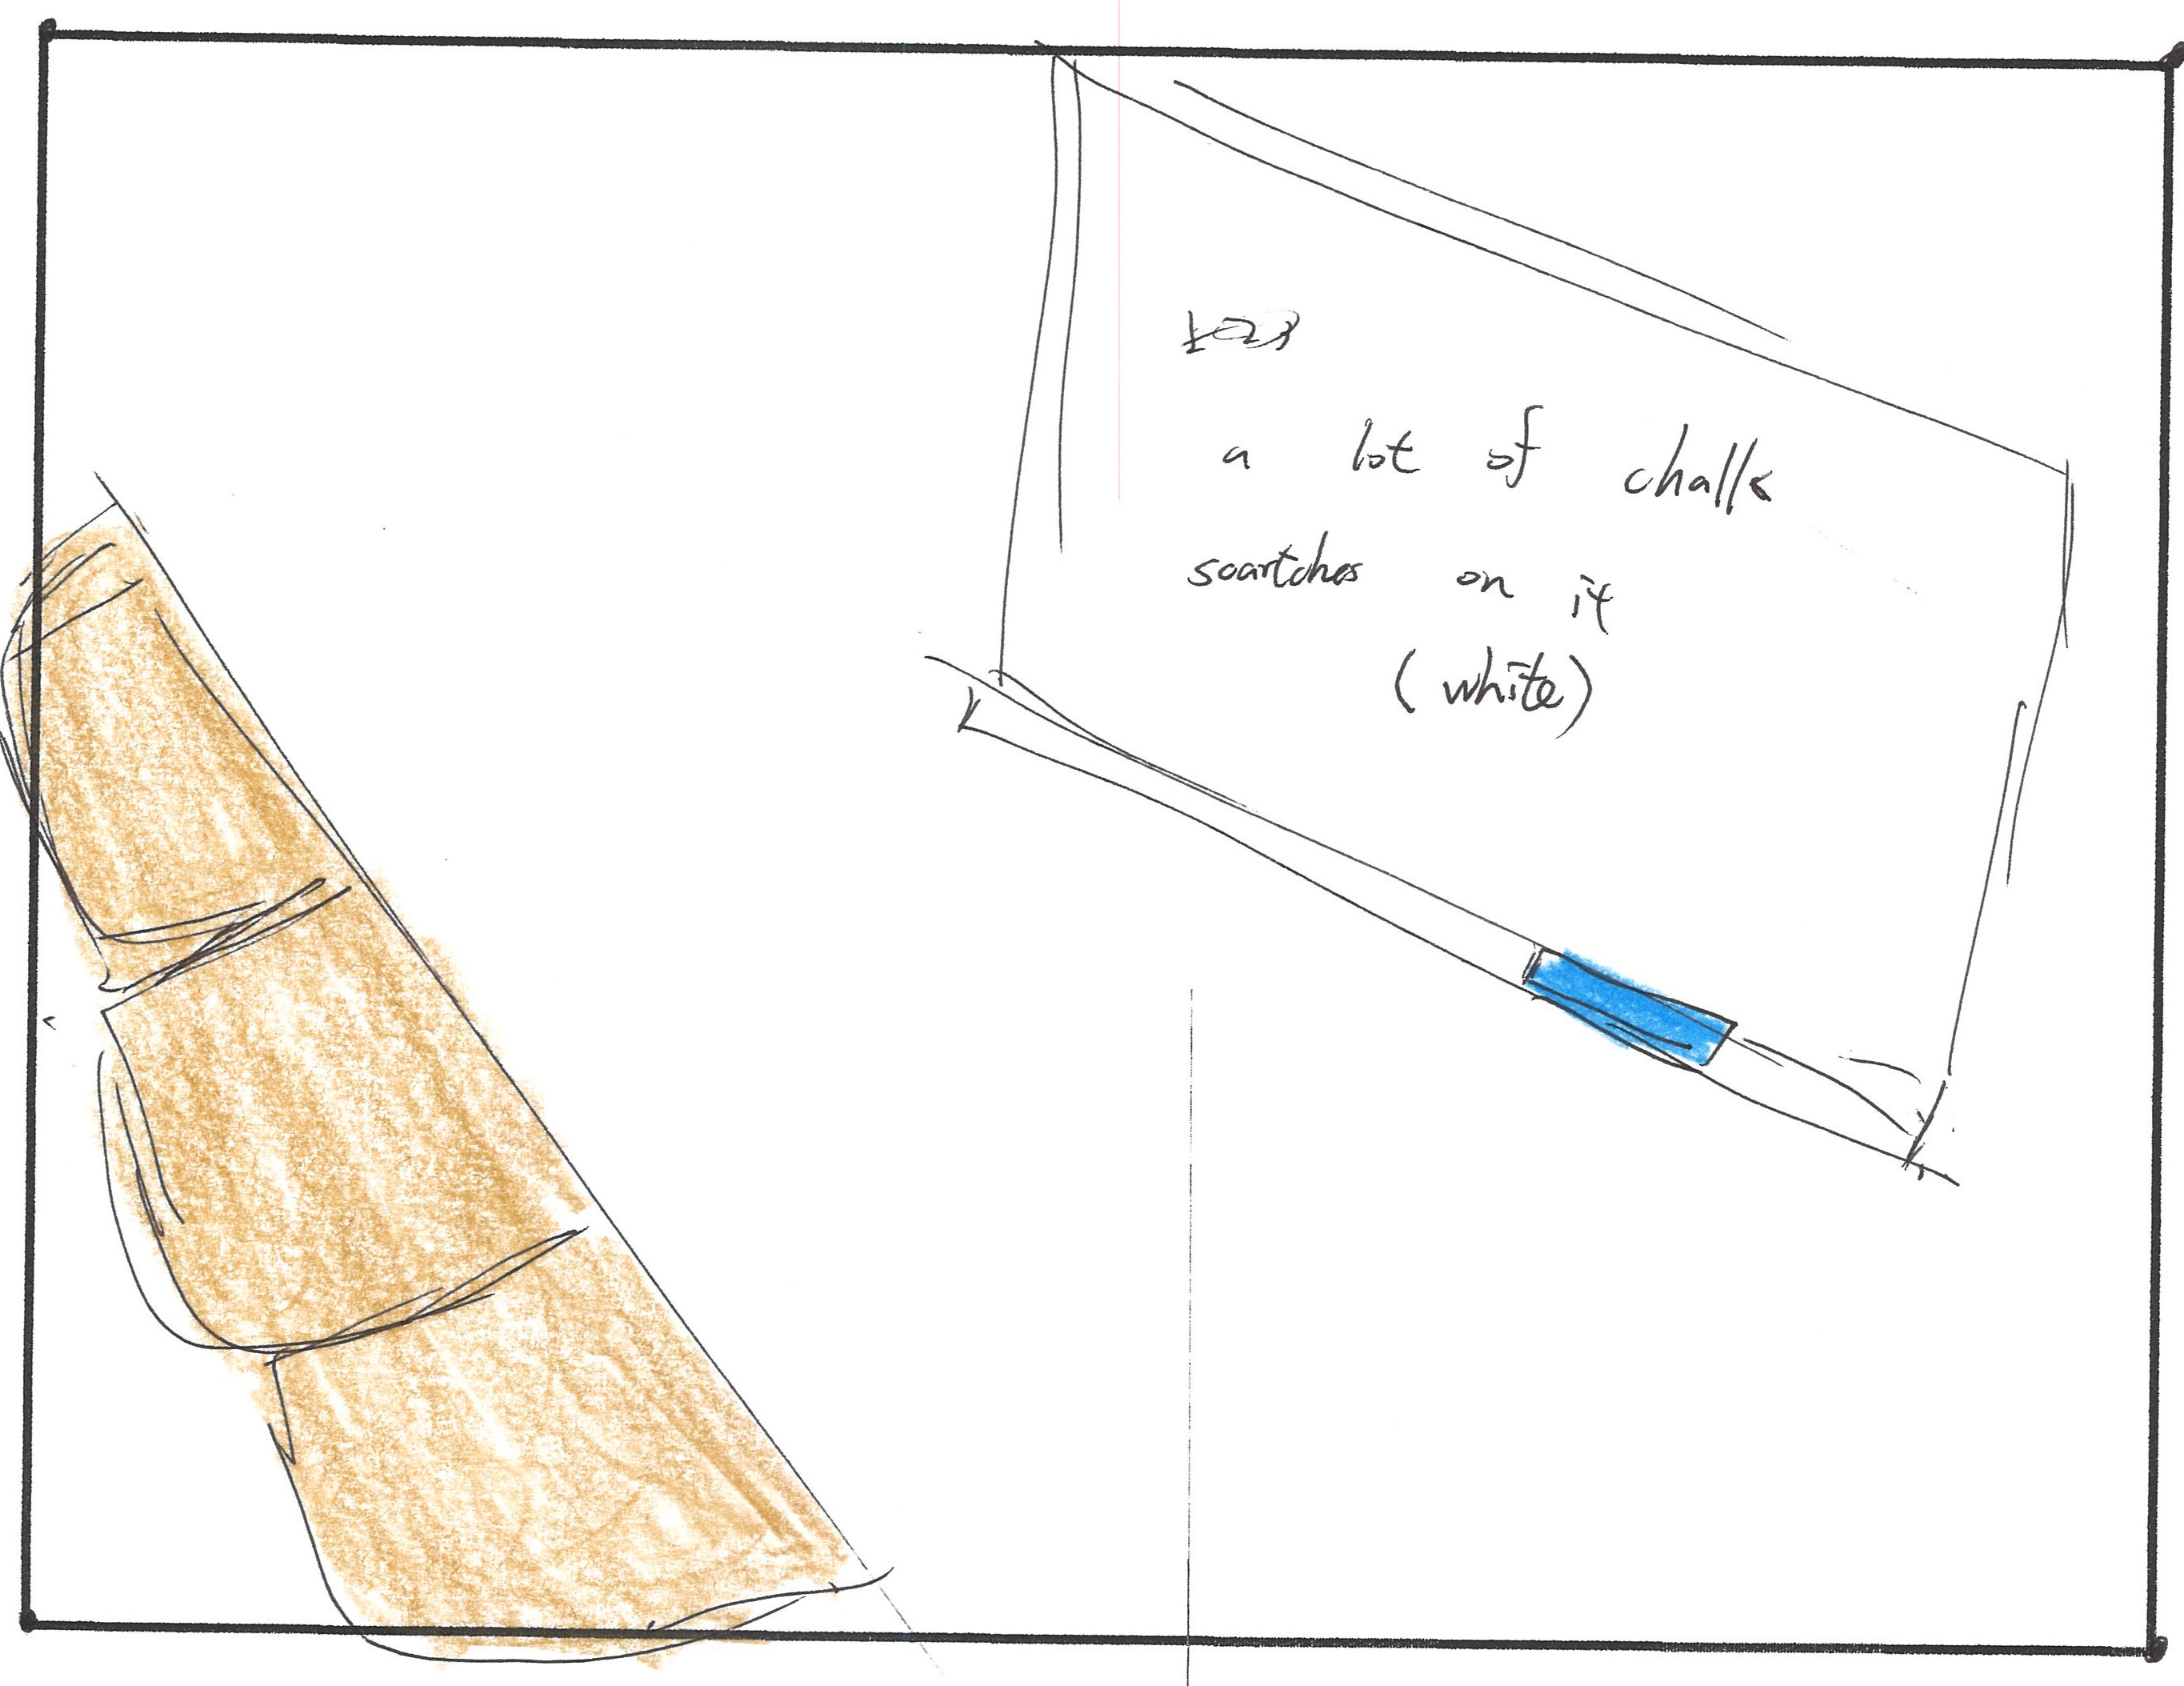 a lot of chalk
scartches on it
(white)